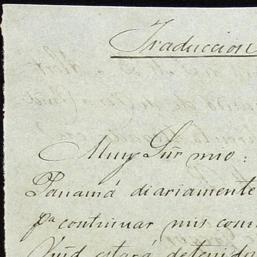 Traduccion
Muy Sñr mio:
Panamá diariamente
pa continuar mis com
Vmd estará detenido